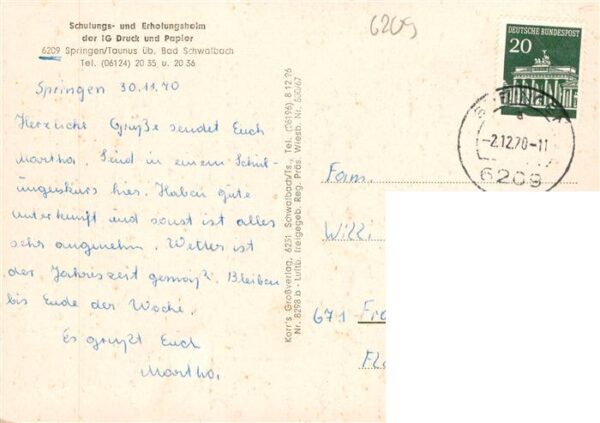 Schulungs- und Erholungsheim
der IG Druck und Papier
6209 Springen/Taunus üb. Bad Schwalbach
Tel. (06124) 20 35 u. 20 36
6209
DEUTSCHE BUNDESPOST
20
-2.12.70-11
6209
Springen 30.11.70
Herzliche Grüße sendet Euch
Martha. Sind in einem Schul-
ungskurs hier. Haben gute
Unterkunft und sonst ist alles
sehr angenehm. Wetter ist
der Jahreszeit gemäß. Bleiben
bis Ende der Woche.
Es grüßt Euch
Martha.
Korr's Großverlag, 6231 Schwalbach/Ts., Tel. (06196) 8 12 96
Nr. 8298 b - Luftb. freigegeb. Reg. Präs. Wiesb. Nr. 500/67
Fam.
Willi
671 Fra
Fl